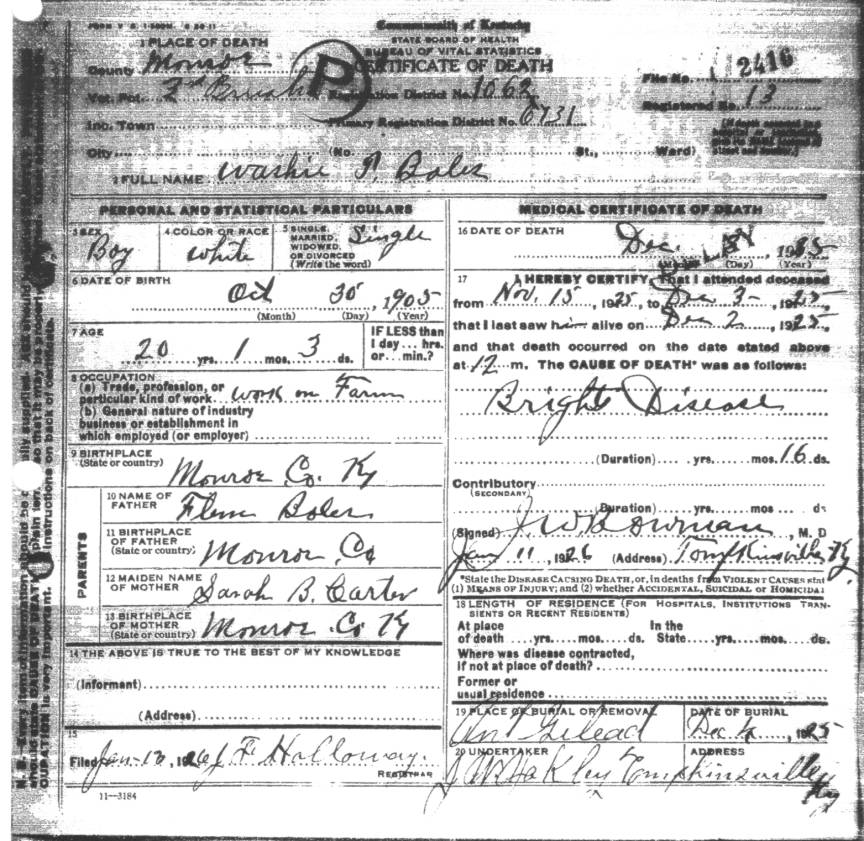 FORM V. S. 1-
Commonwealth of Kentucky
STATE BOARD OF HEALTH
BUREAU OF VITAL STATISTICS
CERTIFICATE OF DEATH
1 PLACE OF DEATH
County Monroe
Vot. Pct. Registration District No. 1062
Inc. Town Primary Registration District No. 6731
City (No. St., Ward)
File No. 2416
Registered No. 13
P
2 FULL NAME Washie Boles
PERSONAL AND STATISTICAL PARTICULARS
3 SEX Boy
4 COLOR OR RACE White
5 SINGLE, MARRIED, WIDOWED, OR DIVORCED (Write the word) Single
6 DATE OF BIRTH
Oct 30, 1905
(Month) (Day) (Year)
7 AGE
20 yrs. 1 mos. 3 ds.
IF LESS than 1 day ... hrs. or ... min.?
8 OCCUPATION
(a) Trade, profession, or particular kind of work work on Farm
(b) General nature of industry business or establishment in which employed (or employer)
9 BIRTHPLACE
(State or country) Monroe Co. Ky
PARENTS
10 NAME OF FATHER Flem Boles
11 BIRTHPLACE OF FATHER (State or country) Monroe Co
12 MAIDEN NAME OF MOTHER Sarah B. Carter
13 BIRTHPLACE OF MOTHER (State or country) Monroe Co Ky
14 THE ABOVE IS TRUE TO THE BEST OF MY KNOWLEDGE
(Informant)
(Address)
15
Filed Jan 1926 J F Holloway
REGISTRAR
11—3184
MEDICAL CERTIFICATE OF DEATH
16 DATE OF DEATH
Dec. 1925
(Month) (Day) (Year)
DELAY
17 I HEREBY CERTIFY, That I attended deceased
from Nov. 15, 1925, to Dec 3-, 1925
that I last saw him alive on Dec 2, 1925
and that death occurred on the date stated above
at 12 m. The CAUSE OF DEATH* was as follows:
Brights Disease
(Duration) yrs. mos. 16 ds.
Contributory
(SECONDARY)
(Duration) yrs. mos. ds
(Signed) J. W. Bowman, M. D
Jan 11, 1926 (Address) Tompkinsville Ky
*State the DISEASE CAUSING DEATH, or, in deaths from VIOLENT CAUSES stat
(1) MEANS OF INJURY; and (2) whether ACCIDENTAL, SUICIDAL or HOMICIDAL
18 LENGTH OF RESIDENCE (FOR HOSPITALS, INSTITUTIONS TRAN-
SIENTS OR RECENT RESIDENTS)
At place of death yrs. mos. ds. In the State yrs. mos. ds.
Where was disease contracted,
if not at place of death?
Former or
usual residence
19 PLACE OF BURIAL OR REMOVAL
Gilead
DATE OF BURIAL
Dec 1925
20 UNDERTAKER
ADDRESS
Tompkinsville Ky